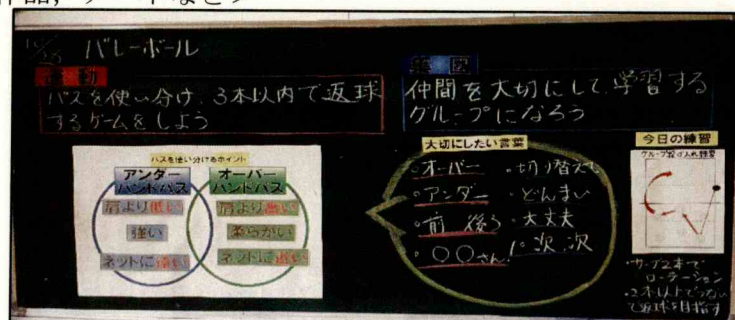 バレーボール
運動
パスを使い分け、3本以内で返球
するゲームをしよう
集団
仲間を大切にして、学習する
グループになろう
パスを使い分けるポイント
アンダー
ハンドパス
オーバー
ハンドパス
肩より低い
強い
ネットに遠い
肩より高い
柔らかい
ネットに近い
大切にしたい言葉
・オーバー
・アンダー
・前 後ろ
・〇〇さん!
・切り替えて
・どんまい
・大丈夫
・次、次
今日の練習
・サーブ2本で
ローテーション
・2本以上でつない
で返球を目指す